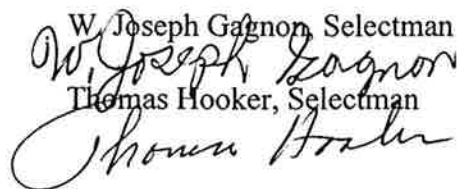 W. Joseph Gagnon, Selectman
W. Joseph Gagnon
Thomas Hooker, Selectman
Thomas Hooker